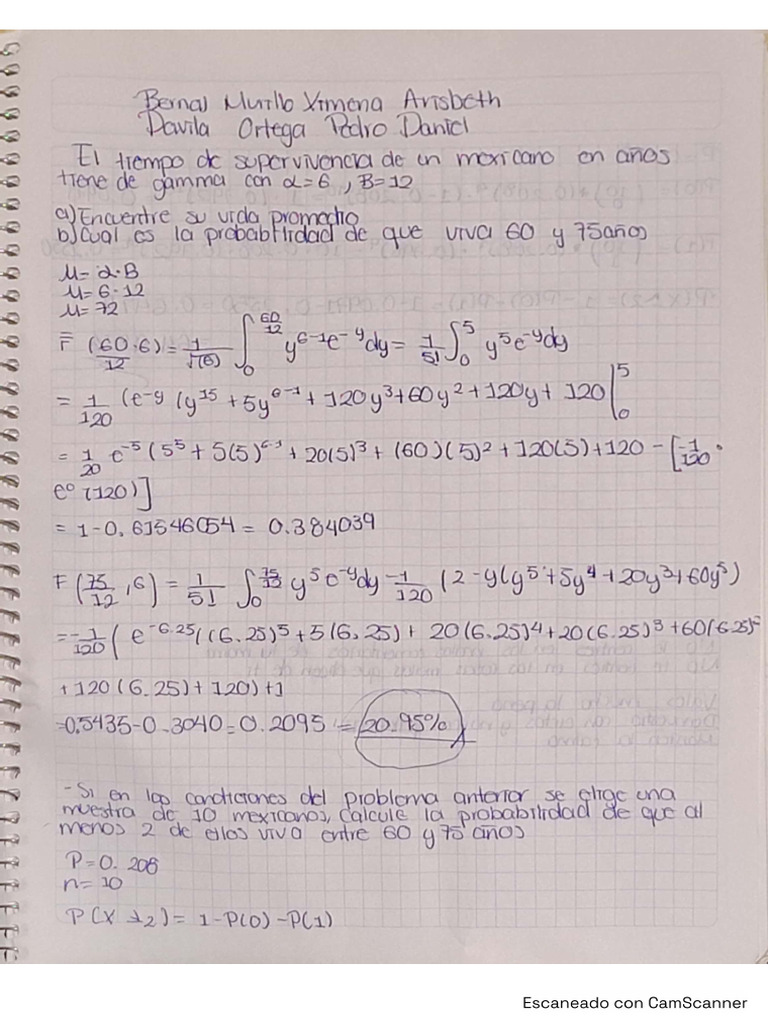 Bernal Murillo Ximena Arisbeth
Davila Ortega Pedro Daniel
El tiempo de supervivencia de un mexicano en años
tiene de gamma con α=6, B=12
a) Encuentre su vida promedio
b) Cual es la probabilidad de que viva 60 y 75 años
M= α·B
M= 6·12
M= 72
F (60/12 · 6) = 1/Γ(6) ∫₀^(60/12) y^(6-1) e^(-y) dy = 1/5! ∫₀^5 y^5 e^(-y) dy
= 1/120 (e^(-y) (y^15 + 5y^(6-1) + 120y^3 + 60y^2 + 120y + 120 |₀^5
= 1/20 e^(-5) (5^5 + 5(5)^(6-1) + 20(5)^3 + (60)(5)^2 + 120(5) + 120 - [-1/120 ·
e^0 (120)]
= 1-0.61546054 = 0.384039
F (75/12, 6) = 1/5! ∫₀^(75/12) y^5 e^(-y) dy -1/120 (2-y(y^5 + 5y^4 + 20y^3 + 60y^5)
= -1/120 ( e^(-6.25) ((6.25)^5 + 5(6.25) + 20(6.25)^4 + 20(6.25)^3 + 60(6.25)^2
+ 120(6.25) + 120) + 1
=0.5435-0.3040=0.2095 = 20.95%
-Si en las condiciones del problema anterior se elige una
muestra de 10 mexicanos, Calcule la probabilidad de que al
menos 2 de ellos viva entre 60 y 75 años
P=0.206
n=10
P(X ≥2) = 1-P(0) -P(1)
Escaneado con CamScanner